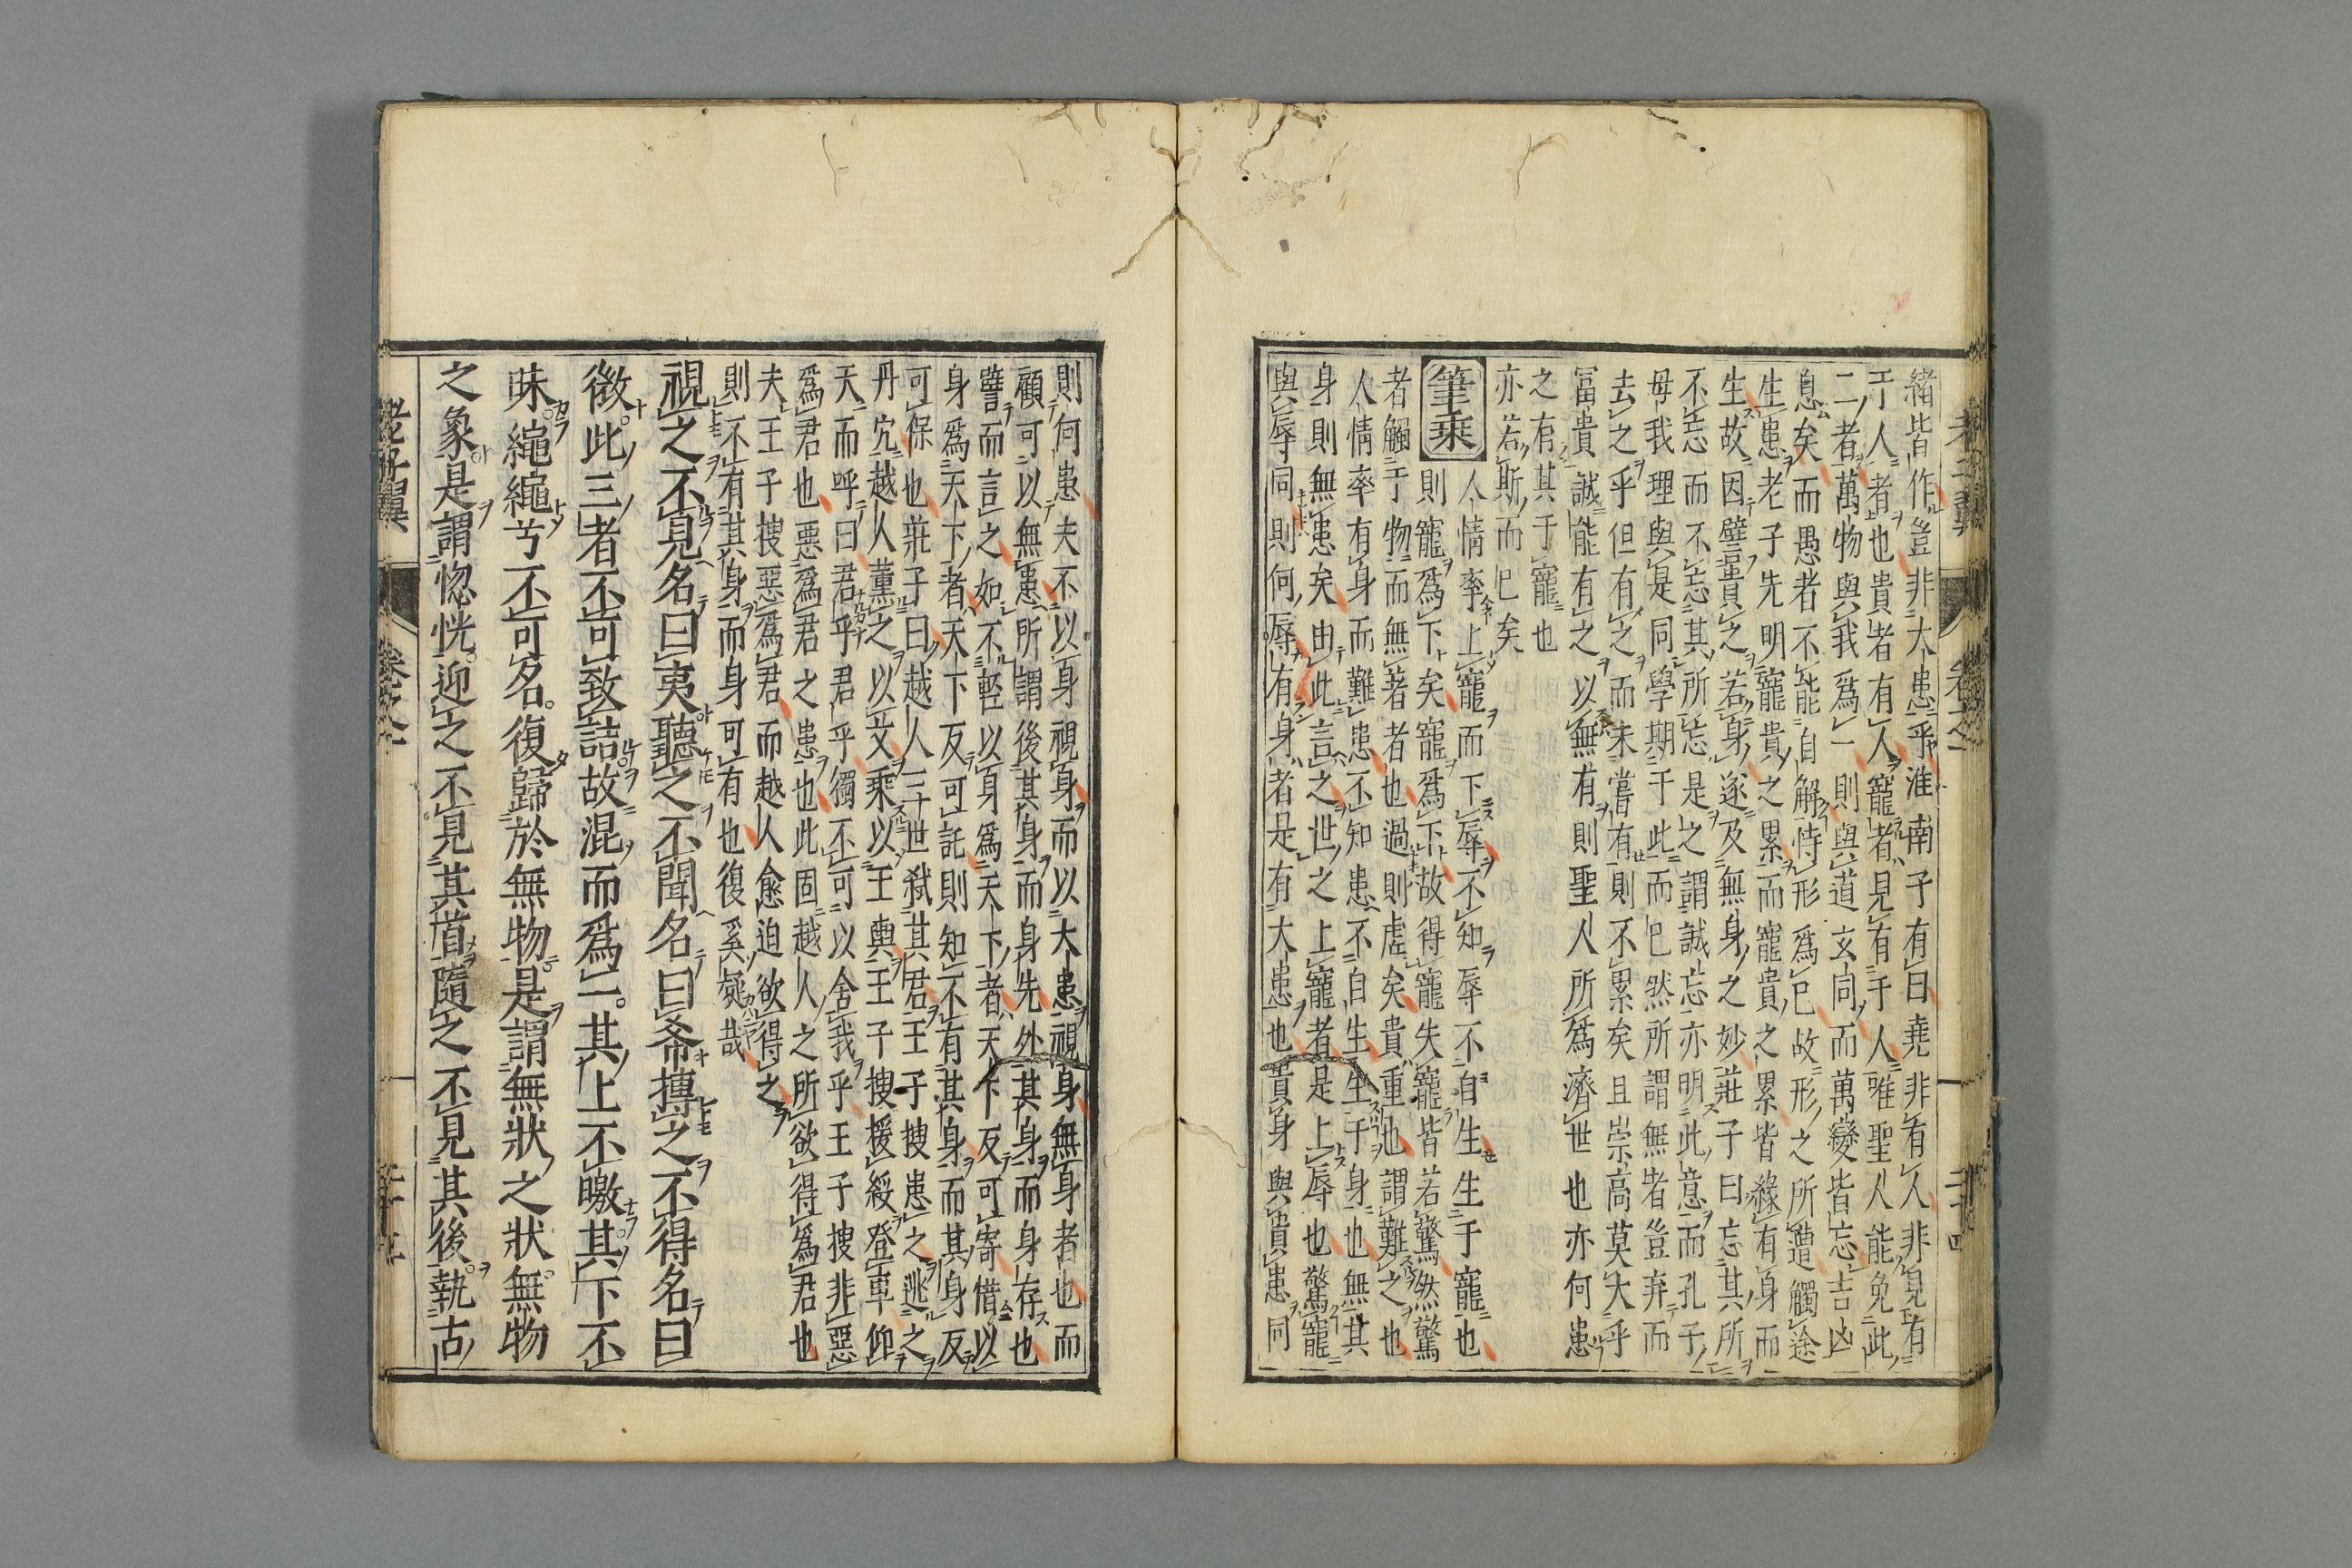 緒皆作豈非大患乎淮南子有曰堯非有人非見有
于人者也貴者有人寵者見有于人唯聖人能免此
二者萬物與我爲一則與道玄同而萬變皆忘吉凶
息矣而愚者不能自解恃形爲已故形之所遭觸途
生患老子先明寵貴之累而寵貴之累皆緣有身而
生故因譬貴之若身遂及無身之妙莊子曰忘其所
不忘而不忘其所忘是之謂誠忘亦明此意而孔子
毋我理與是同學期于此而已然所謂無者豈弃而
去之乎但有之而未嘗有則不累矣且崇高莫大乎
富貴誠能有之以無有則聖人所爲濟世也亦何患
之有其于寵也
亦若斯而已矣
筆乗 人情率上寵而下辱不知辱不自生生于寵也
則寵爲下矣寵爲下故得寵失寵皆若驚然驚
者觸于物而無著者也過則虛矣貴重也謂難之也
人情率有身而難患不知患不自生生于身也無其
身則無患矣由此言之世之上寵者是上辱也驚寵
與辱同則何辱有身者是有大患也貴身與貴患同
則何患夫不以身視身而以大患視身無身者也而
顧可以無患所謂後其身而身先外其身而身存也
譬而言之如不輕以身爲天下者天下反可寄惜以
身爲天下者天下反可託則知不有其身而其身反
可保也莊子曰越人三世弑其君王子搜患之逃之
丹穴越人薰之以艾乘以王輿王子搜援綏登車仰
天而呼曰君乎君乎獨不可以舍我乎王子搜非惡
爲君也惡爲君之患也此固越人之所欲得爲君也
夫王子搜惡爲君而越人愈迫欲得之
則不有其身而身可有也復奚疑哉
視之不見名曰夷聽之不聞名曰希摶之不得名曰
微此三者不可致詰故混而爲一其上不皦其下不
昧繩繩兮不可名復歸於無物是謂無狀之狀無物
之象是謂惚恍迎之不見其首隨之不見其後執古
老子翼 卷之一 二十五
老子翼 卷之一 二十四